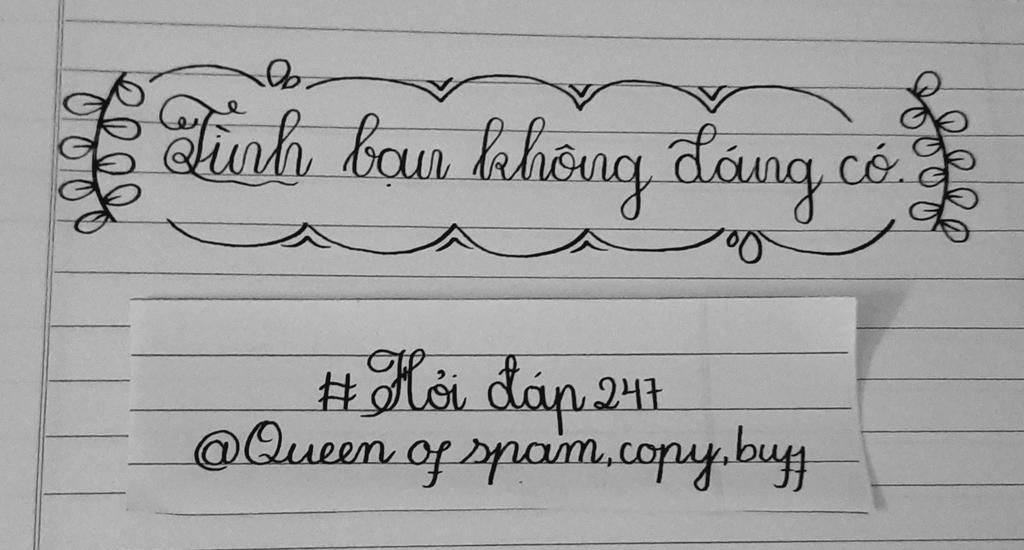 Tình bạn không đáng có.
#Hỏi đáp 247
@Queen of spam, copy, buff